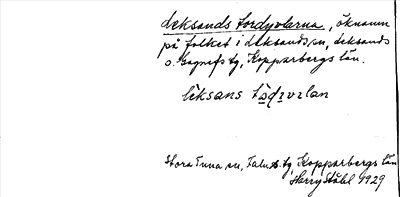 Leksands tordyvlarna, öknamn
på folket i Leksands sn, Leksands
o. Gagnefs tg, Kopparbergs län.
lèksans tọdɪvḷan
Stora Tuna sn, Falu s. tg, Kopparbergs län
Harry Ståhl 1929